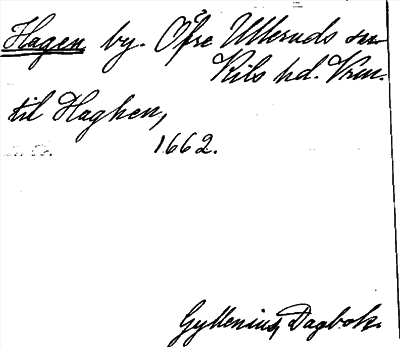 Hagen by. Öfre Ulleruds sn
Kils hd. Vrml.
til Haghen,
1662.
Gyllenius, Dagbok.